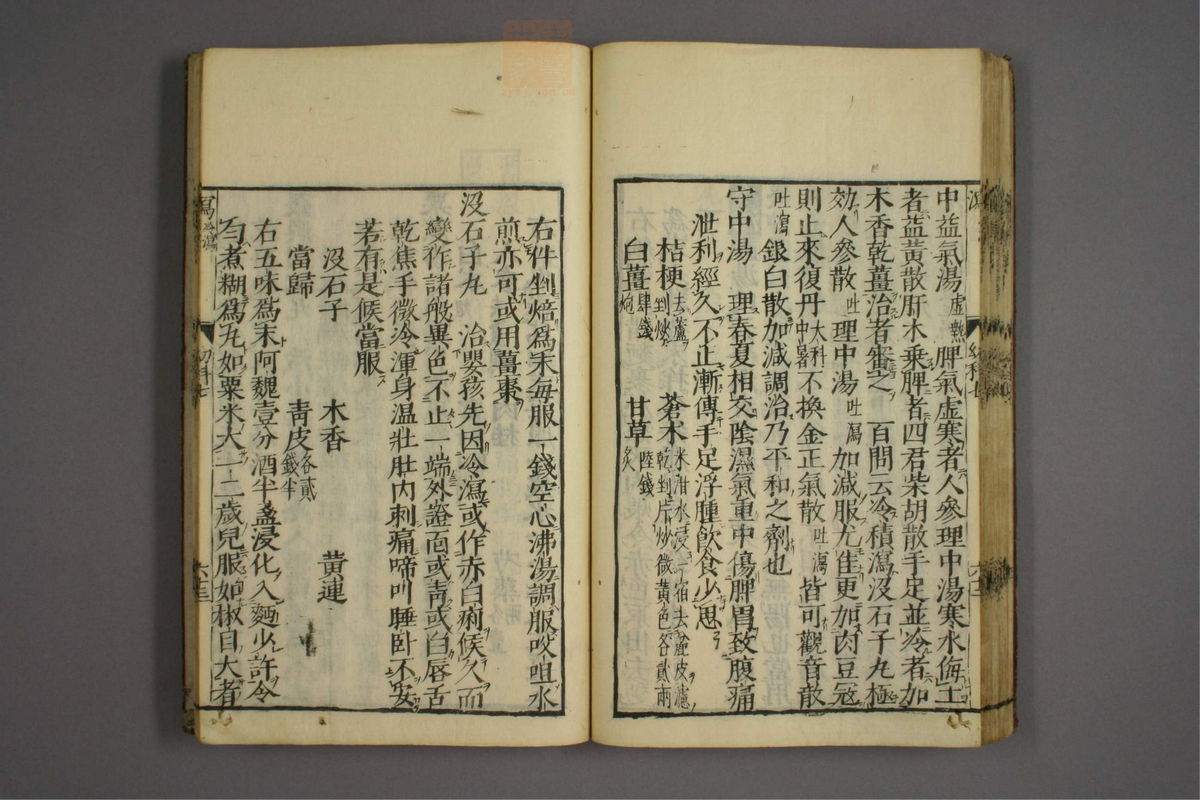 中益氣湯虛熱脾氣虛寒者人參理中湯寒水侮土
者益黃散肝木乗脾者四君柴胡散手足並冷者加
木香乾薑治者審之百問云冷積瀉沒石子丸極
効人參散吐瀉理中湯吐瀉加減服尤佳更加肉豆寇
則止來復丹大科中暑不換金正氣散吐瀉皆可觀音散
吐瀉銀白散加減調治乃平和之劑也
守中湯 理春夏相交陰濕氣重中傷脾胃致腹痛
泄利經久不止漸傳手足浮腫飲食少思
桔梗去蘆剉炒 蒼朮米泔水浸一宿去麄皮濾乾剉片炒微黃色各貳兩
白薑炮肆錢 甘草炙陸錢
右件剉焙爲末每服一錢空心沸湯調服㕮咀水
煎亦可或用薑棗
沒石子丸 治嬰孩先因冷瀉或作赤白痢候久而
變作諸般異色不止一端外證面或青或白唇舌
乾焦手微冷渾身温壯肚内刺痛啼叫睡卧不安
若有是候當服
沒石子 木香 黃連
當歸 青皮各貳錢半
右五味爲末阿魏壹分酒半盞浸化入麵少許令
勻煮糊爲丸如粟米大一二歲兒服如椒目大者